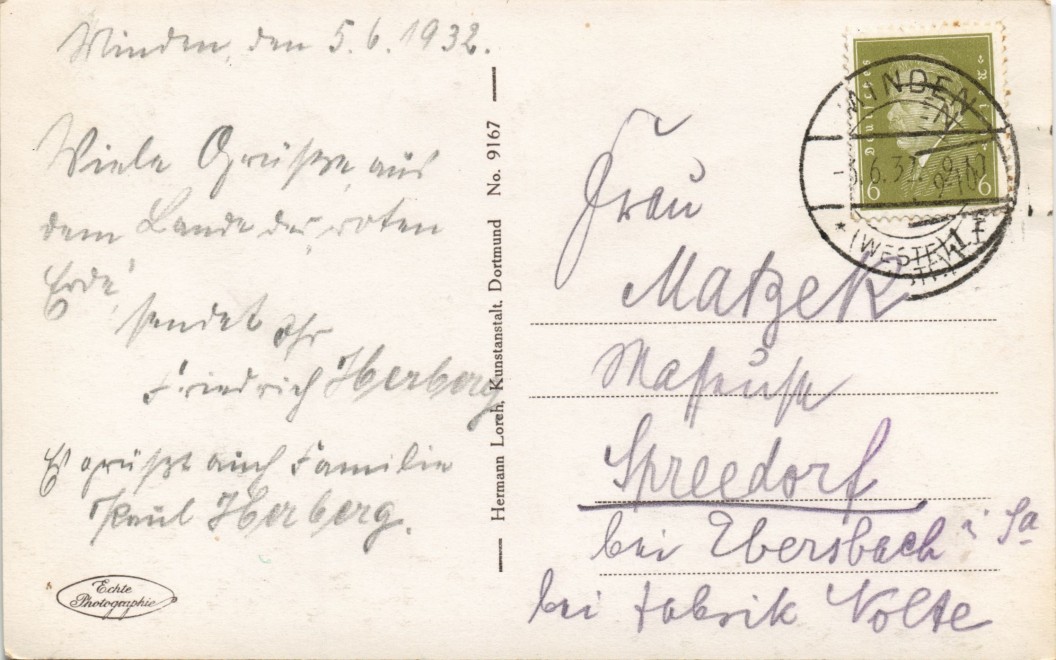 Minden, den 5.6.1932.
Viele Grüße aus
dem Lande der roten
Erde,
sendet Ihr
Friedrich Herberg
Es grüßt auch Familie
Paul Herberg.
Echte
Photographie
Hermann Lorch, Kunstanstalt, Dortmund No. 9167
Deutsches Reich
6 6
MINDEN
* (WESTF)
Frau
Matzek
Spreedorf
bei Ebersbach i Sa
bei Fabrik Nolte